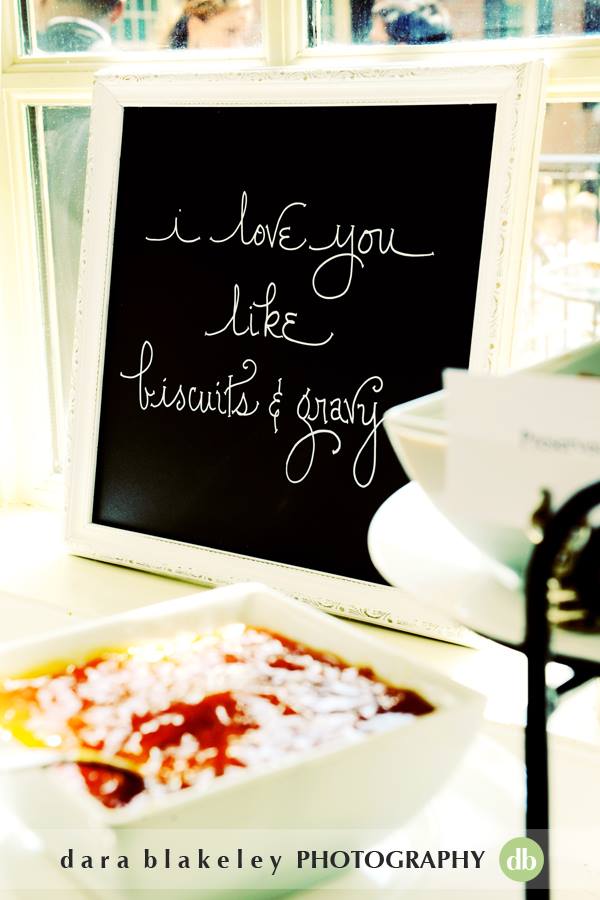 i love you
like
biscuits & gravy
dara blakeley PHOTOGRAPHY db